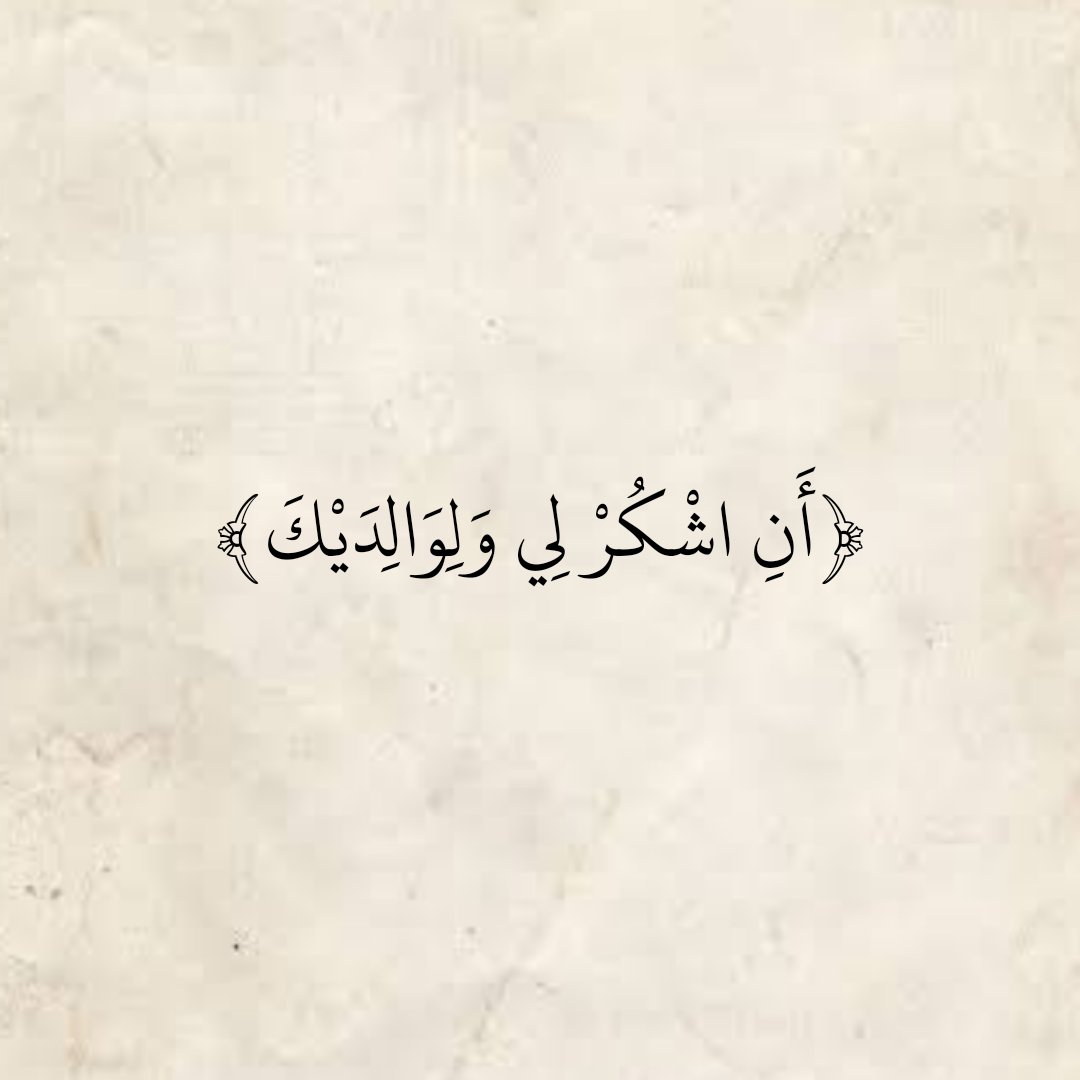 ﴿أَنِ اشْكُرْ لِي وَلِوَالِدَيْكَ﴾